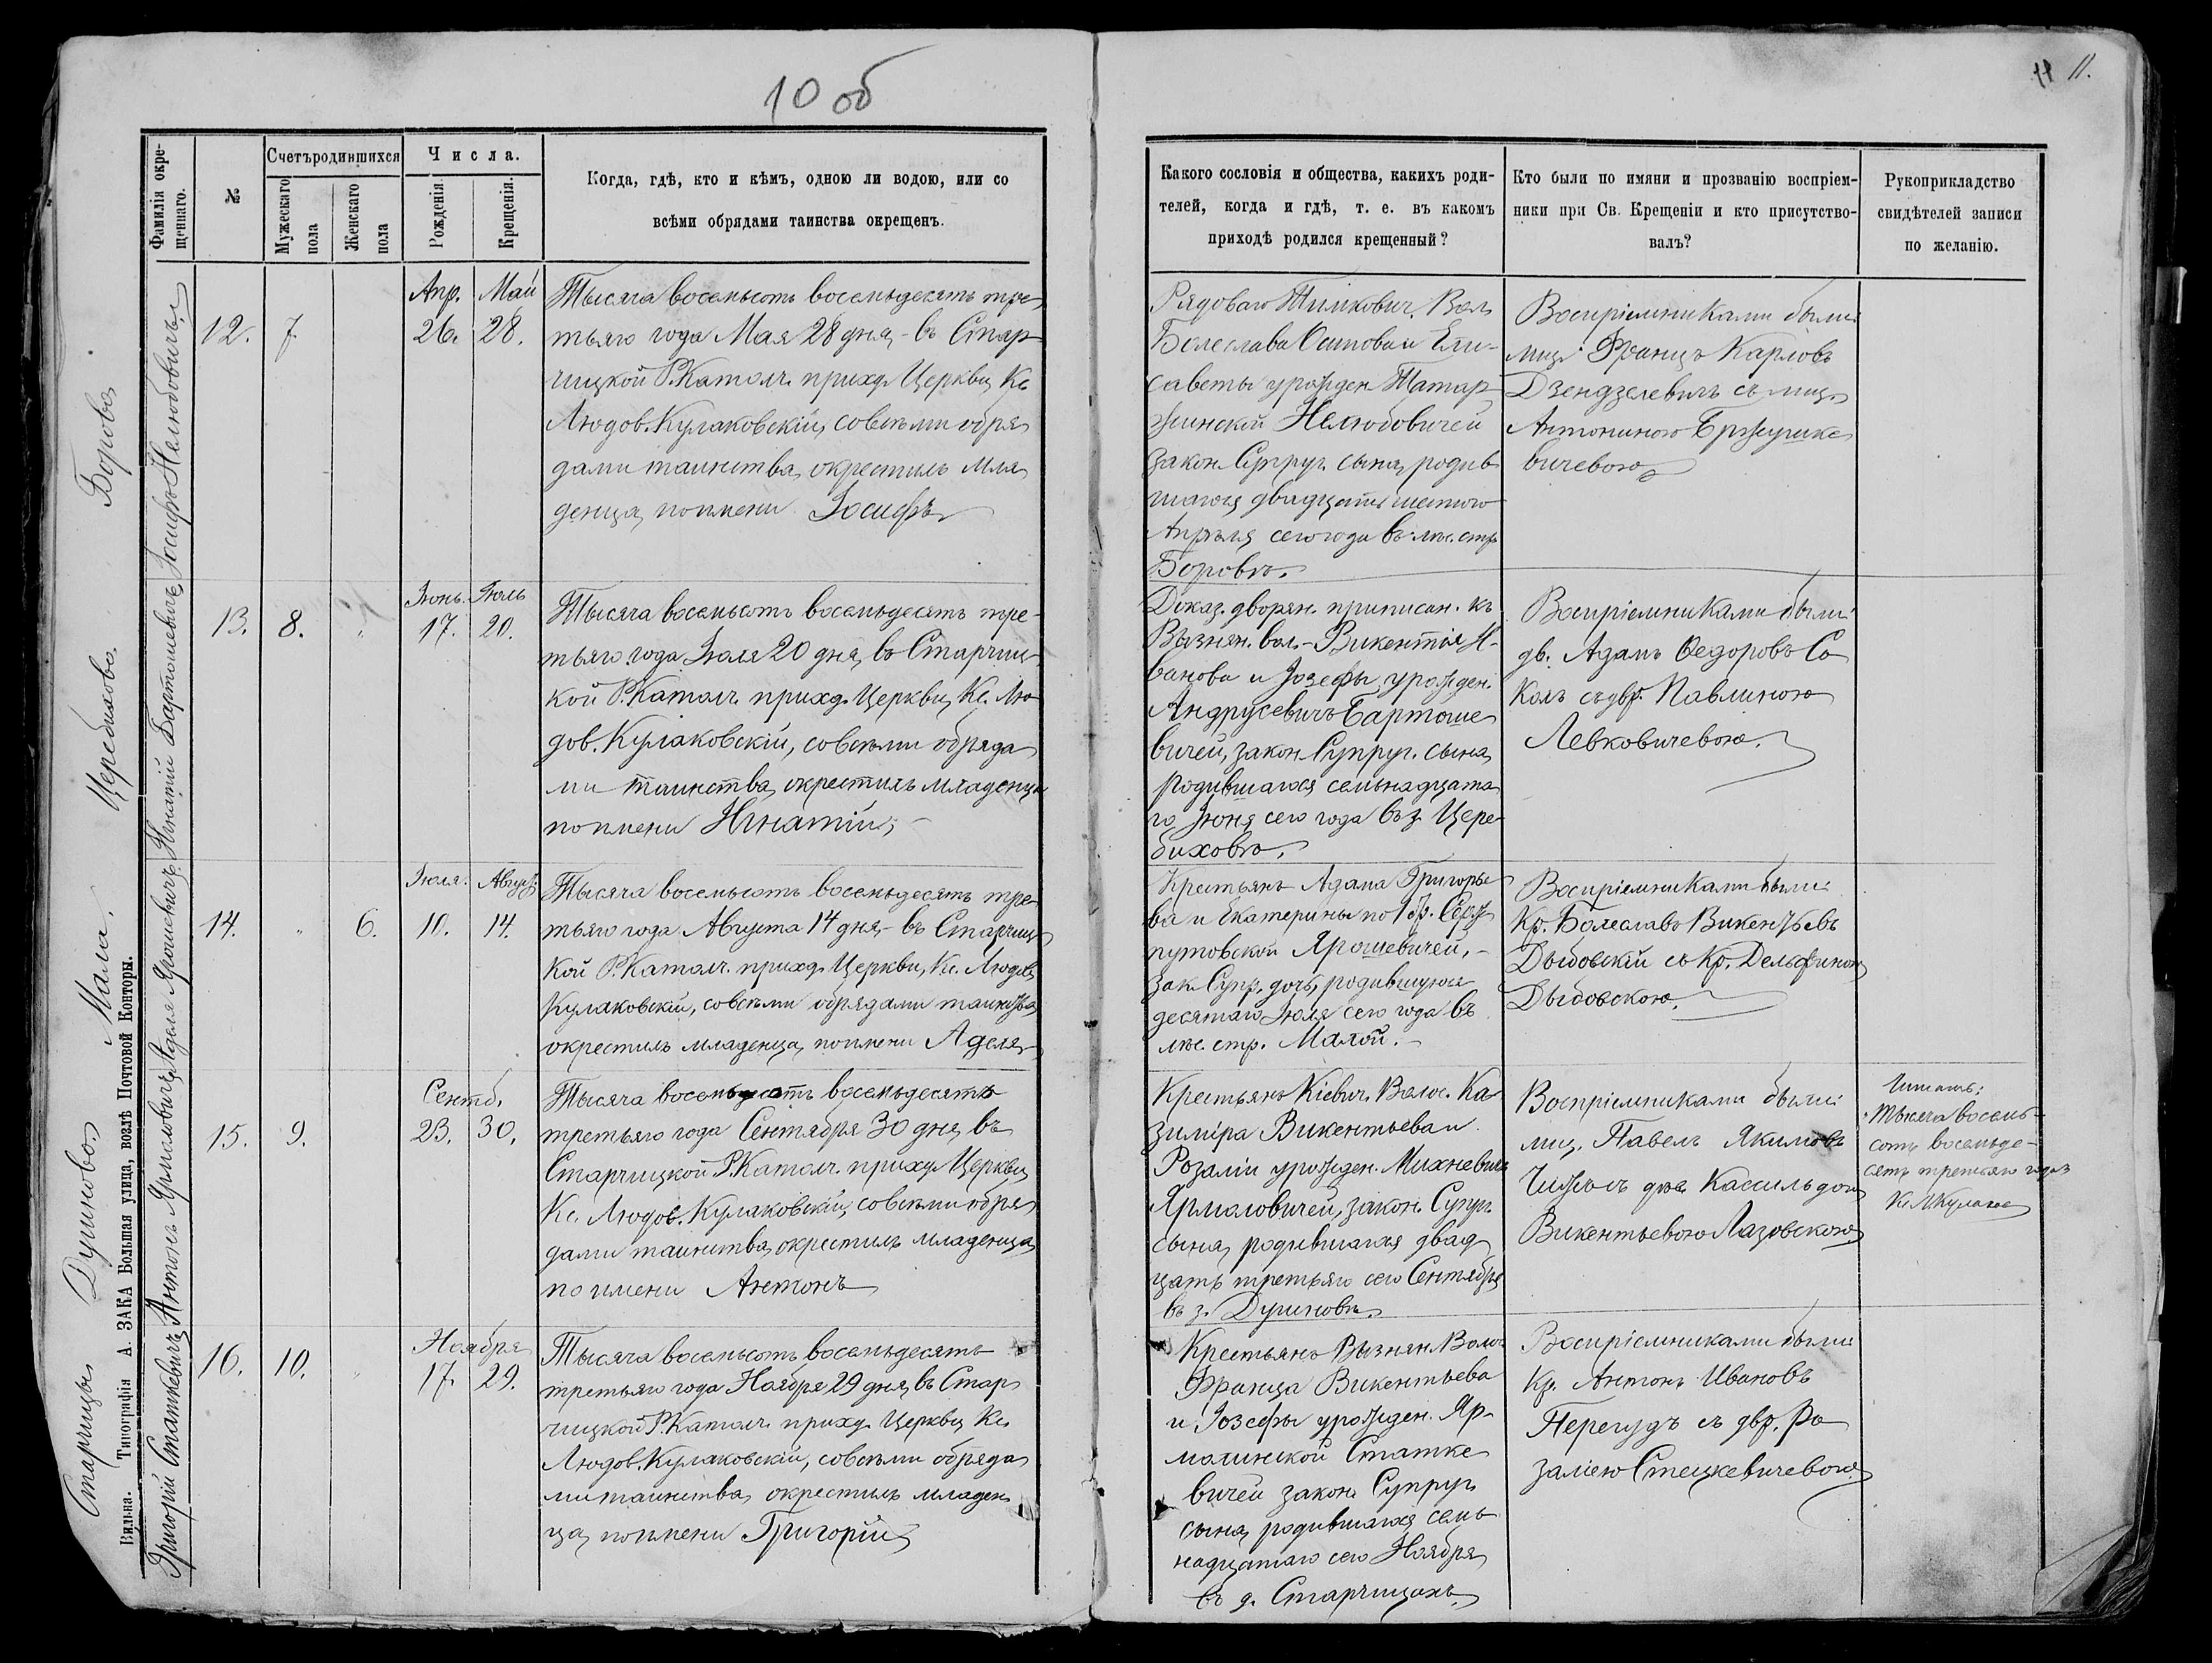 10 об
11 11.
Фамилія окре-
щеннаго.
№
Счетъ родившихся
Мужескаго
пола
Женскаго
пола
Числа.
Рожденія.
Крещенія.
Когда, гдѣ, кто и кѣмъ, одною ли водою, или со
всѣми обрядами таинства окрещенъ.
Какого сословія и общества, какихъ роди-
телей, когда и гдѣ, т. е. въ какомъ
приходѣ родился крещенный?
Кто были по имяни и прозванію воспріем-
ники при Св. Крещеніи и кто присутство-
валъ?
Рукоприкладство
свидѣтелей записи
по желанію.
Борова
Іосифъ Нелюбовичъ
12.
7
Апр. Май
26. 28.
Тысяча восемьсотъ восемьдесятъ тре-
тьяго года Мая 28 дня, въ Стар-
чицкой Р. Катол. приход. Церкви, Кс.
Людов. Кулаковскій, со всѣми обря-
дами таинства, окрестилъ мла-
денца, по имени Іосифъ
Рядоваго Тимкович. Вол.
Болеслава Осипова и Ели-
саветы урожден. Татар-
жинской Нелюбовичей
закон. Супруг. сына, родив-
шагося двадцать шестого
Апрѣля сего года въ лѣс. стр.
Боровѣ.
Воспріемниками были:
мищ. Францъ Карловъ
Дзендзелевичъ съ мищ.
Антониною Бржушке-
вичевою
Церебихово
Игнатій Бартошевичъ
13.
8.
Іюнь. Іюль
17. 20.
Тысяча восемьсотъ восемьдесятъ тре-
тьяго года Іюля 20 дня, въ Старчиц-
кой Р. Катол. приход. Церкви, Кс. Лю-
дов. Кулаковскій, со всѣми обряда-
ми таинства, окрестилъ младенца
по имени Игнатій,
Доказ. дворян. приписан. къ
Вызнян. вол. - Викентія И-
ванова и Іозефы, урожден.
Андрусевичъ Бартоше-
вичей, закон. Супруг. сына,
родившагося семьнадцата-
го Іюня сего года въ з. Цере-
биховѣ.
Воспріемниками были:
дв. Адамъ Ѳедоровъ Со-
колъ съ двр. Павлиною
Левковичевою.
Мала.
Аделя Ярошевичъ
14.
6.
Іюля. Август.
10. 14.
Тысяча восемьсотъ восемьдесятъ тре-
тьяго года Августа 14 дня, въ Старчиц-
кой Р. Катол. приход. Церкви, Кс. Людов.
Кулаковскій, со всѣми обрядами таинства
окрестилъ младенца, по имени Аделя,
Крестьянъ Адама Григорье-
ва и Екатерины по 1 бр. Серж-
путовской Ярошевичей, -
зак. Супр. дочь, родившуюся
десятаго Іюля сего года въ
лѣс. стр. Малой. -
Воспріемниками были:
Кр. Болеславъ Викентьевъ
Дыбовскій съ Кр. Дельфиною
Дыбовскою.
Душиново.
Антонъ Ярмоловичъ
15.
9.
Сентб.
23. 30.
Тысяча восемьсотъ восемьдесятъ
третьяго года Сентября 30 дня, въ
Старчицкой Р. Катол. приход. Церкви,
Кс. Людов. Кулаковскій, со всѣми обря-
дами таинства, окрестилъ младенца,
по имени Антонъ
Крестьянъ Кіевич. Волос. Ка-
зиміра Викентьева и
Розаліи урожден. Михневичъ
Ярмоловичей, закон. Супруг.
сына, родившагося двад-
цать третьяго сего Сентября
въ з. Душиновѣ.
Воспріемниками были:
мищ. Павелъ Якимовъ
Чижъ съ Кассильдою
Викентьевою Лазовскою.
Читать:
Тысяча восемь-
сотъ восемьде-
сятъ третьяго года
Кс. Л. Кулаков
Старчицы
Григорій Статкевичъ
16.
10.
Ноября
17. 29.
Тысяча восемьсотъ восемьдесятъ
третьяго года Ноября 29 дня, въ Стар-
чицкой Р. Катол. приход. Церкви, Кс.
Людов. Кулаковскій, со всѣми обряда-
ми таинства, окрестилъ младен-
ца, по имени Григорій
Крестьянъ Вызнян. Волос.
Франца Викентьева
и Іозефы урожден. Яр-
молинской Статке-
вичей закон. Супруг.
сына, родившагося семь-
надцатаго сего Ноября,
въ д. Старчицахъ.
Воспріемниками были:
Кр. Антонъ Ивановъ
Перегудъ съ двр. Ро-
заліею Стецкевичевою.
Вильна. Типографія А. ЗАКА Большая улица, возлѣ Почтовой Конторы.